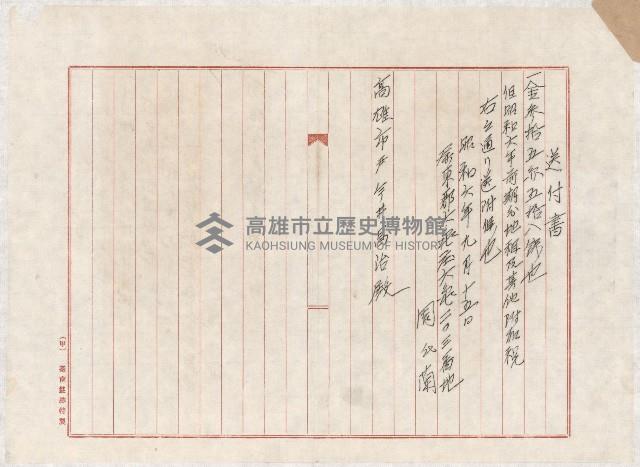 送付書
一金参拾五円五拾八銭也
但昭和六年前期分地租及其他附加税
右之通り送附候也
昭和六年九月十五日
屏東郡六龜庄六龜二〇三番地
周 蘭
高雄市 今井 治殿
高雄市立歷史博物館
KAOHSIUNG MUSEUM OF HISTORY
(甲)